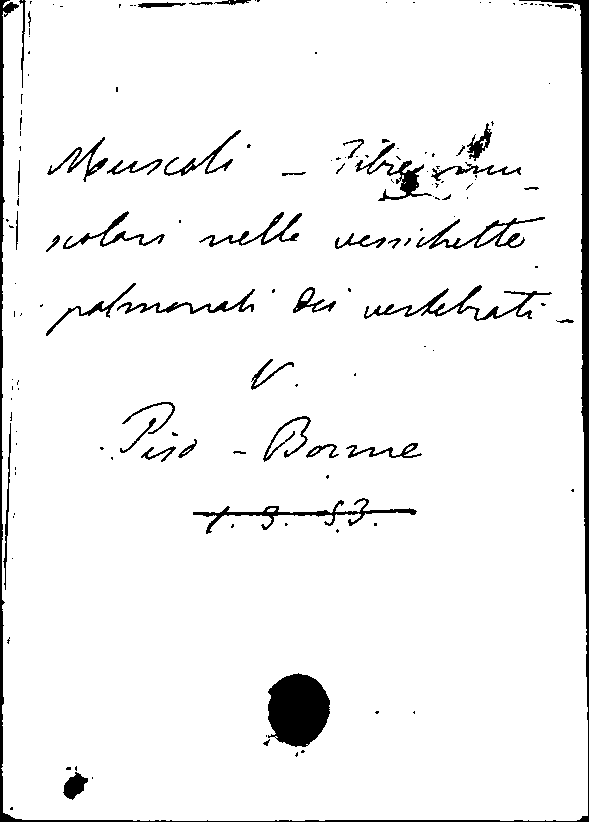 Muscoli – Fibre mu_
scolari nelle vessichette
polmonali dei vertebrati –
V.
Piso – Borme
1. 3. 53.